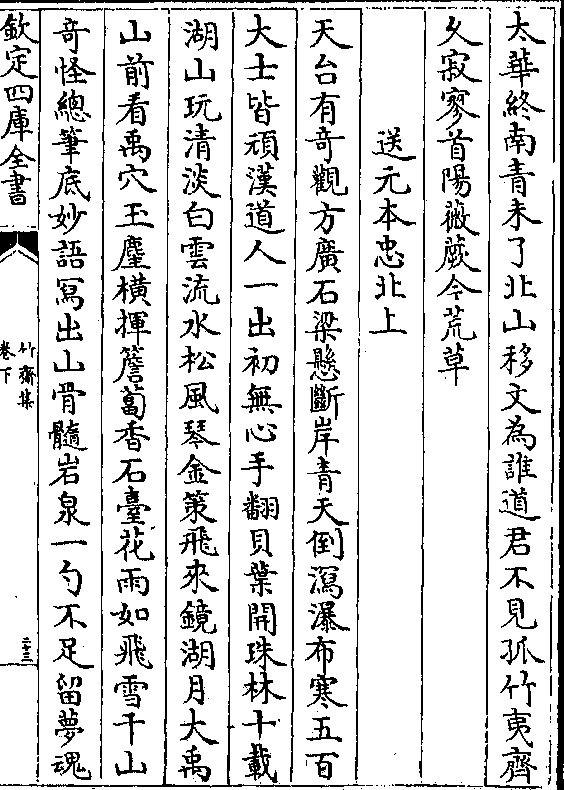 太華終南青未了北山移文為誰道君不見孤竹夷齊
久寂寥首陽薇蕨今荒草
送元本忠北上
天台有奇觀方廣石梁懸斷岸青天倒瀉瀑布寒五百
大士皆頑漢道人一出初無心手翻貝葉開珠林十載
湖山玩清淡白雲流水松風琴金策飛來鏡湖月大禹
山前看禹穴玉麈橫揮簷蔔香石臺花雨如飛雪千山
奇怪總筆底妙語寫出山骨髓岩泉一勺不足留夢魂
欽定四庫全書
竹齋集
卷下
二十三